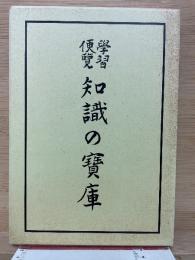 學習
便覽
知識の寶庫